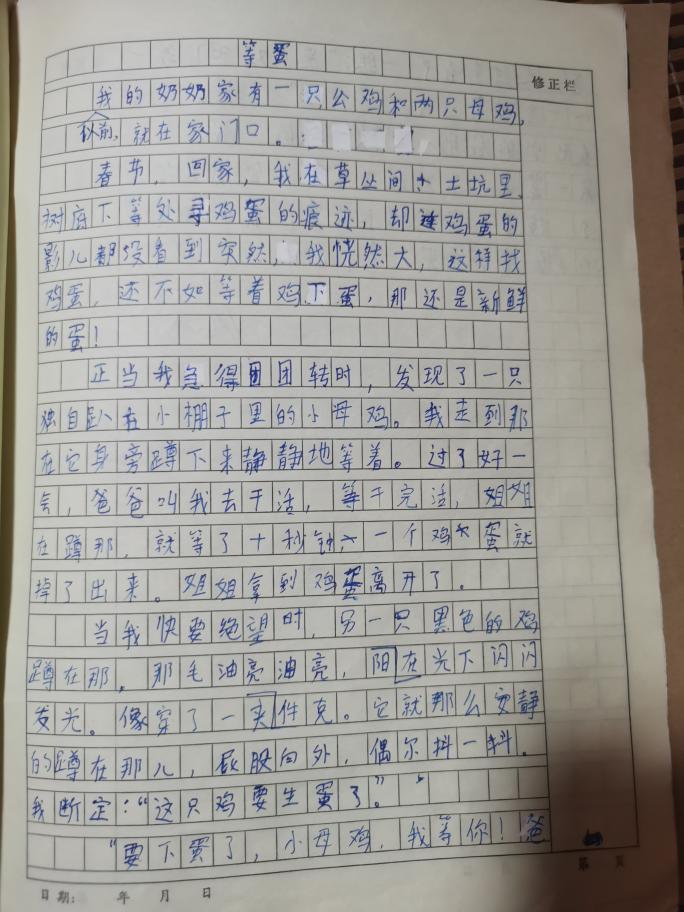 等蛋
修正栏
我的奶奶家有一只公鸡和两只母鸡,
以前,就在家门口。
春节,回家,我在草丛间、土坑里、
树底下等处寻鸡蛋的痕迹,却连鸡蛋的
影儿都没看到突然,我恍然大,这样找
鸡蛋,还不如等着鸡下蛋,那还是新鲜
的蛋!
正当我急得团团转时,发现了一只
独自趴在小棚子里的小母鸡。我走到那
在它身旁蹲下来静静地等着。过了好一
会,爸爸叫我去干活,等干完活,姐姐
在蹲那,就等了十秒钟,一个鸡蛋就
掉了出来。姐姐拿到鸡蛋离开了.
当我快要绝望时,另一只黑色的鸡
蹲在那.那毛油亮油亮,阳在光下闪闪
发光。像穿了一夹件克。它就那么安静
的蹲在那儿,屁股向外,偶尔抖一抖.
我断定:“这只鸡要生蛋了。”
“要下蛋了,小母鸡,我等你!爸
第 页
日期: 年 月 日